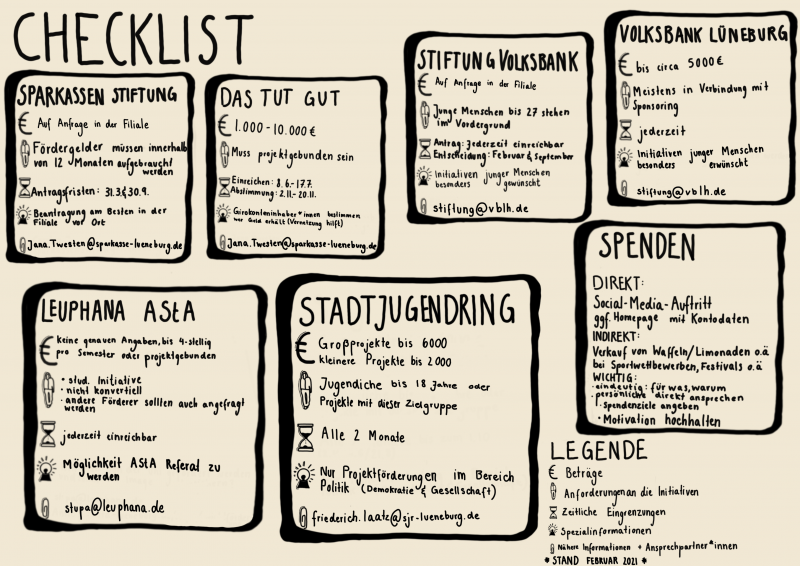 CHECKLIST
SPARKASSEN STIFTUNG
€ Auf Anfrage in der Filiale
Fördergelder müssen innerhalb
von 12 Monaten aufgebraucht
werden
Antragsfristen: 31.3 & 30.9.
Beantragung am Besten in der
Filiale vor Ort
Jana.Twesten@sparkasse-lueneburg.de
DAS TUT GUT
€ 1.000 - 10.000 €
Muss projektgebunden sein
Einreichen: 8.6.-17.7.
Abstimmung: 2.11.-20.11.
Girokontoinhaber*innen bestimmen
wer Geld erhält (Vernetzung hilft)
Jana.Twesten@sparkasse-lueneburg.de
STIFTUNG VOLKSBANK
€ Auf Anfrage in der Filiale
Junge Menschen bis 27 stehen
im Vordergrund
Antrag: Jederzeit einreichbar
Entscheidung: Februar & September
Initiativen junger Menschen
besonders gewünscht
stiftung@vblh.de
VOLKSBANK LÜNEBURG
€ bis circa 5000 €
Meistens in Verbindung mit
Sponsoring
jederzeit
Initiativen junger Menschen
besonders erwünscht
stiftung@vblh.de
LEUPHANA AStA
€ Keine genauen Angaben, bis 4-stellig
pro Semester oder projektgebunden
• stud. Initiative
• nicht konvertiell
• andere Förderer sollten auch angefragt
werden
jederzeit einreichbar
Möglichkeit AStA Referat zu
werden
stupa@leuphana.de
STADTJUGENDRING
€ Großprojekte bis 6000
kleinere Projekte bis 2000
Jugendliche bis 18 Jahre oder
Projekte mit dieser Zielgruppe
Alle 2 Monate
Nur Projektförderungen im Bereich
Politik (Demokratie & Gesellschaft)
friederich.laatz@sjr-lueneburg.de
SPENDEN
DIREKT:
Social-Media-Auftritt
ggf. Homepage mit Kontodaten
INDIREKT:
Verkauf von Waffeln/Limonaden o.ä
bei Sportwettbewerben, Festivals o.ä
WICHTIG:
• eindeutig: für was, warum
• persönliche direkt ansprechen
• spendenziele angeben
• Motivation hochhalten
LEGENDE
€ Beträge
Anforderungen an die Initiativen
Zeitliche Eingrenzungen
Spezialinformationen
Nähere Informationen + Ansprechpartner*innen
* STAND FEBRUAR 2021 *